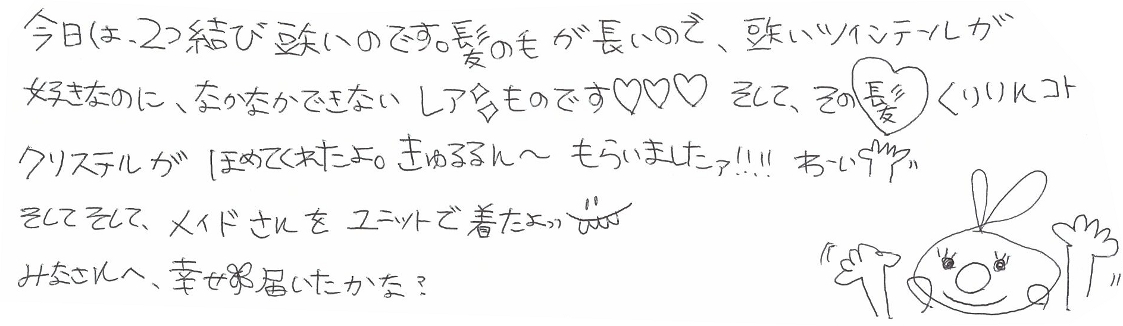 今日は、2つ結び 短いのです。髪の毛が長いので、短いツインテールが
好きなのに、なかなかできない レアものです♡♡♡ そして、その髪 くりりんコト
クリステルが ほめてくれたよ。きゅるるん〜 もらいましたァ!!!! わーい
そしてそして、メイドさんを ユニットで着たよッッ
みなさんへ、幸せ届いたかな?